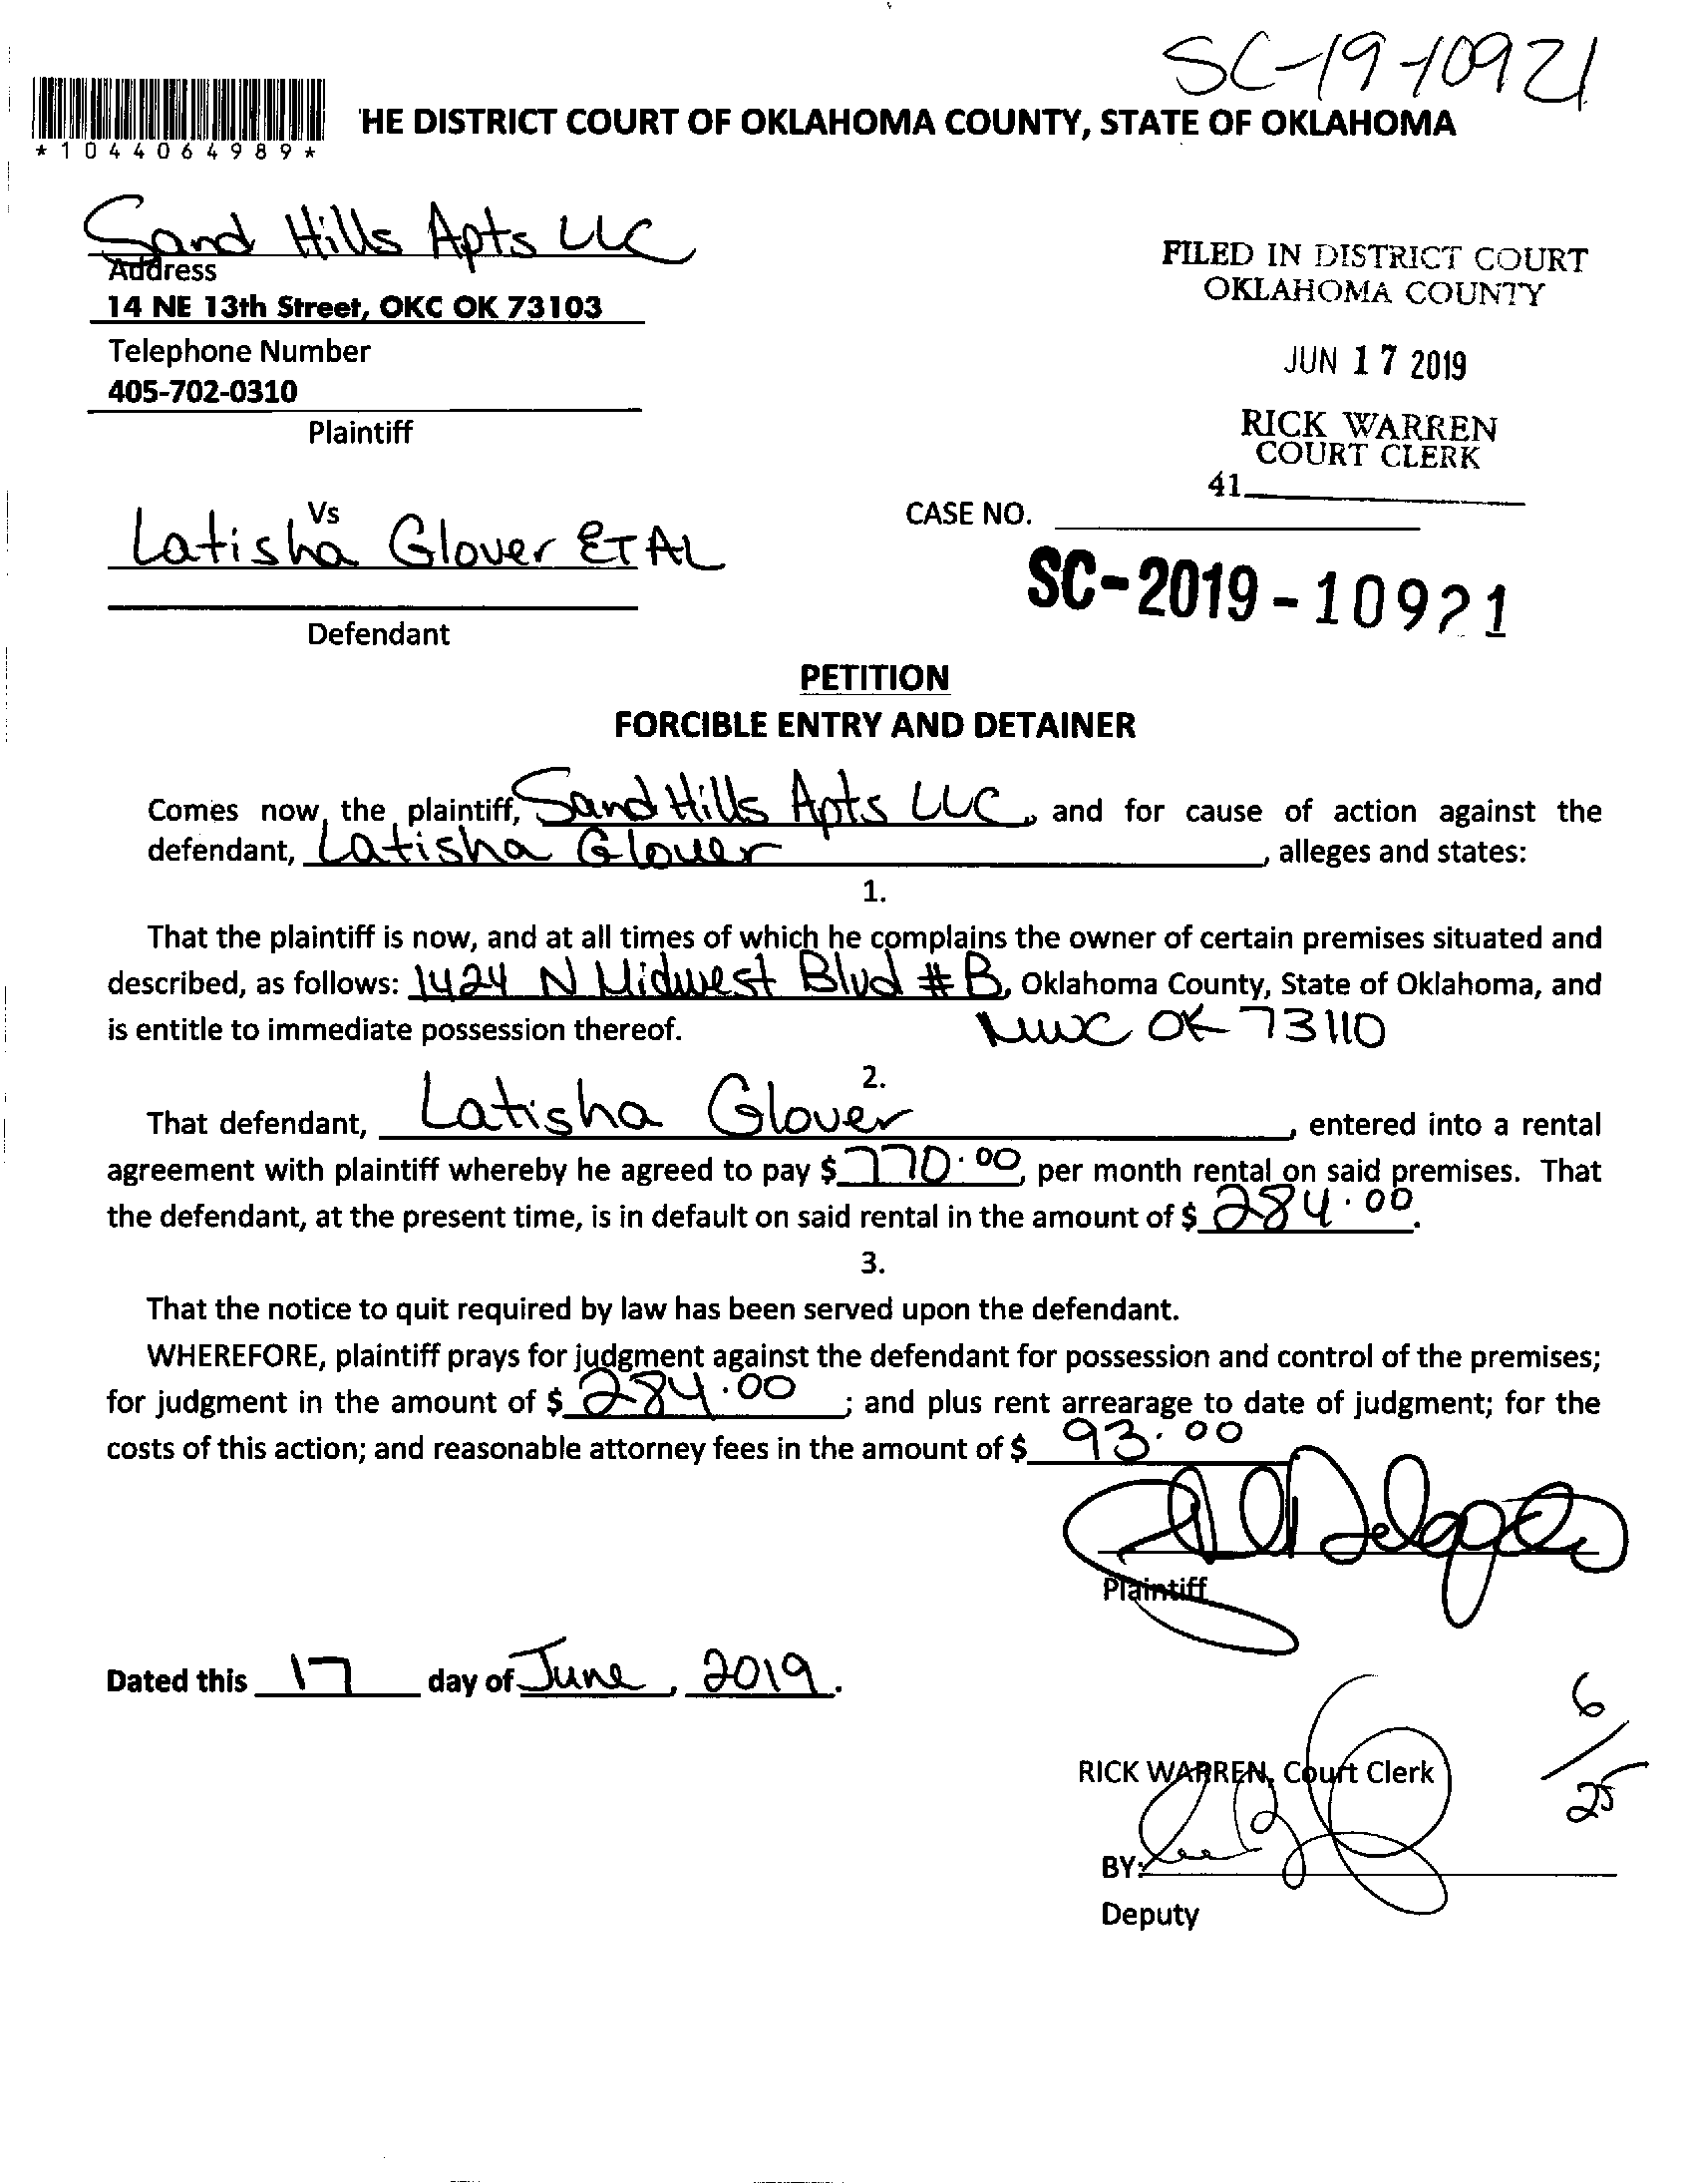 SC-19-10921
*1044064989*
'HE DISTRICT COURT OF OKLAHOMA COUNTY, STATE OF OKLAHOMA
Sand Hills Apts LLC
Address
14 NE 13th Street, OKC OK 73103
Telephone Number
405-702-0310
Plaintiff
FILED IN DISTRICT COURT
OKLAHOMA COUNTY
JUN 17 2019
RICK WARREN
COURT CLERK
41
Vs
Latisha Glover ET AL
Defendant
CASE NO.
SC-2019-10921
PETITION
FORCIBLE ENTRY AND DETAINER
Comes now the plaintiff, Sand Hills Apts LLC, and for cause of action against the
defendant, Latisha Glover, alleges and states:
1.
That the plaintiff is now, and at all times of which he complains the owner of certain premises situated and
described, as follows: 1424 N Midwest Blvd #B, Oklahoma County, State of Oklahoma, and
is entitle to immediate possession thereof. MWC OK 73110
2.
That defendant, Latisha Glover, entered into a rental
agreement with plaintiff whereby he agreed to pay $ 770.00, per month rental on said premises. That
the defendant, at the present time, is in default on said rental in the amount of $ 284.00.
3.
That the notice to quit required by law has been served upon the defendant.
WHEREFORE, plaintiff prays for judgment against the defendant for possession and control of the premises;
for judgment in the amount of $ 284.00; and plus rent arrearage to date of judgment; for the
costs of this action; and reasonable attorney fees in the amount of $ 93.00
Plaintiff
Dated this 17 day of June, 2019.
6/25
RICK WARREN, Court Clerk
BY:
Deputy